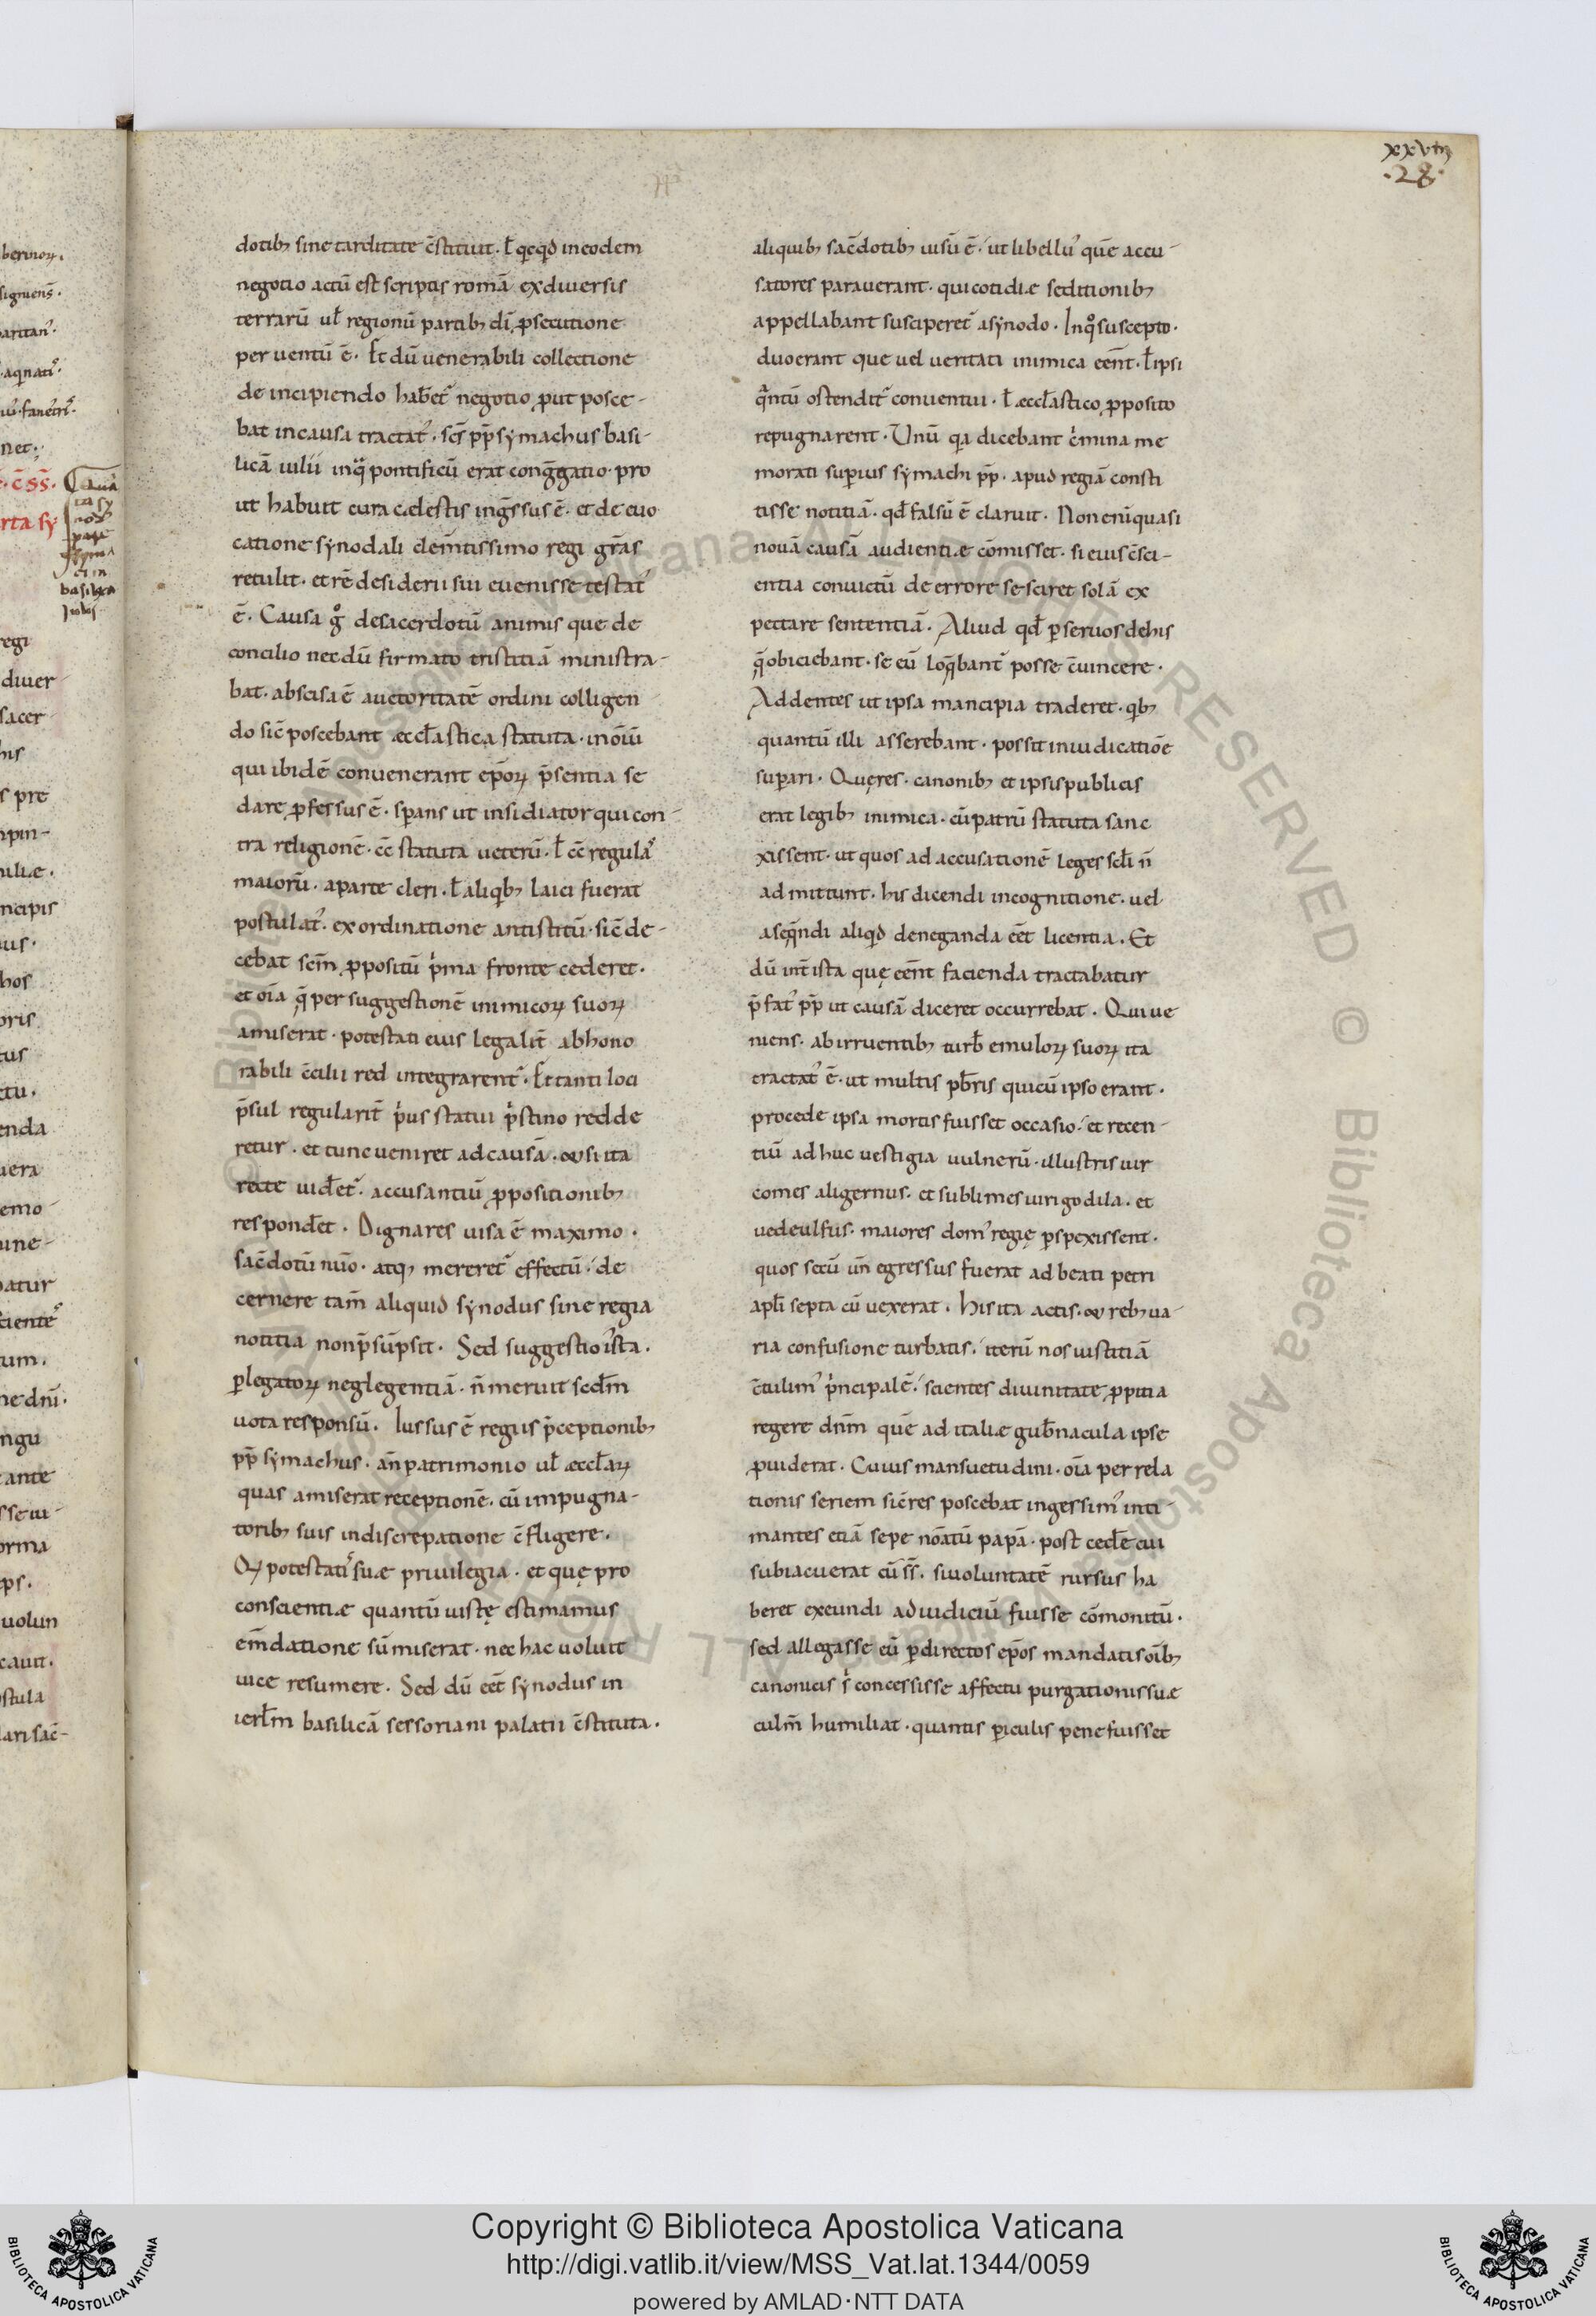 xxviij
·28·
dotibꝫ sine tarditate c̄stituit. ł q̇cqd in eodem
negotio actū est scriptis romā ex diversis
terrarū uł regionū partibꝫ dī ꝓsecutione
per uentū ē. Et dū uenerabili collectione
de incipiendo haƀet᷑ negotio ꝓut posce-
bat in causa tractat᷑. sc̄s pp̄ symachus basi-
licā iulii inq̄ pontificū erat conḡgatio. pro
ut habuit cura cælestis ings̄sus ē. et de euo
catione synodali clem̄tissimo regi gr̄as
retulit. et rē desiderii sui euenisse testat᷑
ē. Causa gͦ de sacerdotū animis que de
concilio necdū firmato tristitiā ministra-
bat. abscisa ē auctoritatē ordini colligen
do sic̄ poscebant æccł̄astica statuta. in oīū
qui ibidē convenerant ep̄oꝝ p̄sentia se
dare ꝓfessus ē. sꝑans ut insidiator qui con-
tra religionē. cc̄ statuta ueterū. ł cc̄ regulaˢ
maiorū. a parte cleri. ł aliqͥbꝫ laici fuerat
postulat᷑. ex ordinatione antistitū. sic̄ de-
cebat sc̄m ꝓpositū pͥma fronte cederet.
et oīa q̄ per suggestionē inimicoꝝ suoꝝ
amiserat. potestati eius legalit̄ ab hono
rabili c̄cilii red integrarent᷑. Et tanti loci
p̄sul regularit̄ pͥus statui pͥstino redde
retur. et tunc ueniret ad causā. & si ita
recte uid̄et᷑. accusantiū ꝓpositionibꝫ
respond̄et. Dignares uisa ē maximo.
sac̄dotū nūo. atqꝫ mereret᷑ effectū. de
cernere tam̄ aliquid synodus sine regia
notitia non p̄sūpsit. Sed suggestio ista.
ꝑ legatoꝝ neglegentiā. n̄ meruit sed̄m
uota responsū. Iussus ē regiis p̄ceptionibꝫ
pp̄ symachus. an̄ patrimonio uł æccł̄aꝝ
quas amiserat receptionē. cū impugna-
toribꝫ suis in discrepatione c̄fligere.
Qꝝ potestatiˢ suæ privilegia. et quę pro
conscientiæ quantū iustę estimamus
em̄datione sūmiserat. nec hac uoluit
uice resumere. Sed dū eēt synodus in
ierł̄m basilicā sessoriani palatii c̄stituta.
aliquibꝫ sac̄dotibꝫ uisū ē. ut libellu᷑ quē accu-
satores parauerant. qui cotidiæ seditionibꝫ
appellabant susciperet᷑ a synodo. In qͦ suscepto.
duo erant que uel ueritati inimica eēnt. ł ipsi
qͣntū ostendit᷑ conuentui. ł æccł̄astico ꝓposito
repugnarent. Unū qͥa dicebant cͥmina me
morati suꝑius symachi pp̄. apud regiā consti
tisse notitiā. qd̄ falsū ē claruit. Non enī quasi
nouā causā audientiæ cōmisset. si eius c̄sci-
entia convictū de errore se sciret solā ex
pectare sententiā. Aliud qd̄ ꝑ seruos de his
q̄ obiciebant. se eū loq̄bant᷑ posse c̄uincere.
Addentes ut ipsa mancipia traderet. qͥbꝫ
quantū illi asserebant. possit in iudicatiōe
suꝑari. Quę res. canonibꝫ et ipsis publicis
erat legibꝫ inimica. cū patrū statuta sanc
xissent. ut quos ad accusationē leges scł̄i n̄
admittunt. his dicendi in cognitione. uel
aseq̄ndi aliqͥd deneganda eēt licentia. Et
dū int̄ ista quę eēnt facienda tractabatur
p̄fat᷑ pp̄ ut causā diceret occurrebat. Qui ue
niens. ab irruentibꝫ turb̄ emuloꝝ suoꝝ ita
tractat᷑ ē. ut multis pb̄ris qui cū ipso erant.
procede ipsa mortis fuisset occasio. et recen-
tiū ad huc uestigia uulnerū. illustris uir
comes aligernus. et sublimes uiri godila. et
uedeulfus. maiores dom᷑ regię ꝑspexissent.
quos secū un̄ egressus fuerat ad beati petri
apłi septa cū uexerat. His ita actis. & rebꝫ ua-
ria confusione turbatis. iterū nos iustitiā
c̄tulim᷑ pͥncipalē. scientes divinitate ꝓpitia
regere dn̄m quē ad italiæ gub̄nacula ipse
ꝓuiderat. Cuius mansuetudini. oīa per rela
tionis seriem sic̄ res poscebat ingessim᷑ inti-
mantes etiā sepe nōatū papā. post ced̄e cui
subiacuerat cū ss̄. si uoluntatē rursus ha
beret exeundi ad iudiciū fuisse cōmonitū.
sed allegasse eū ꝑ directos ep̄os mandatis oībꝫ
canonicis sͥ concessisse affectu purgationis suæ
culm̄ humiliat. quantis ꝑiculis pene fuisset
Copyright © Biblioteca Apostolica Vaticana
http://digi.vatlib.it/view/MSS_Vat.lat.1344/0059
powered by AMLAD·NTT DATA
BIBLIOTECA APOSTOLICA VATICANA
BIBLIOTECA APOSTOLICA VATICANA